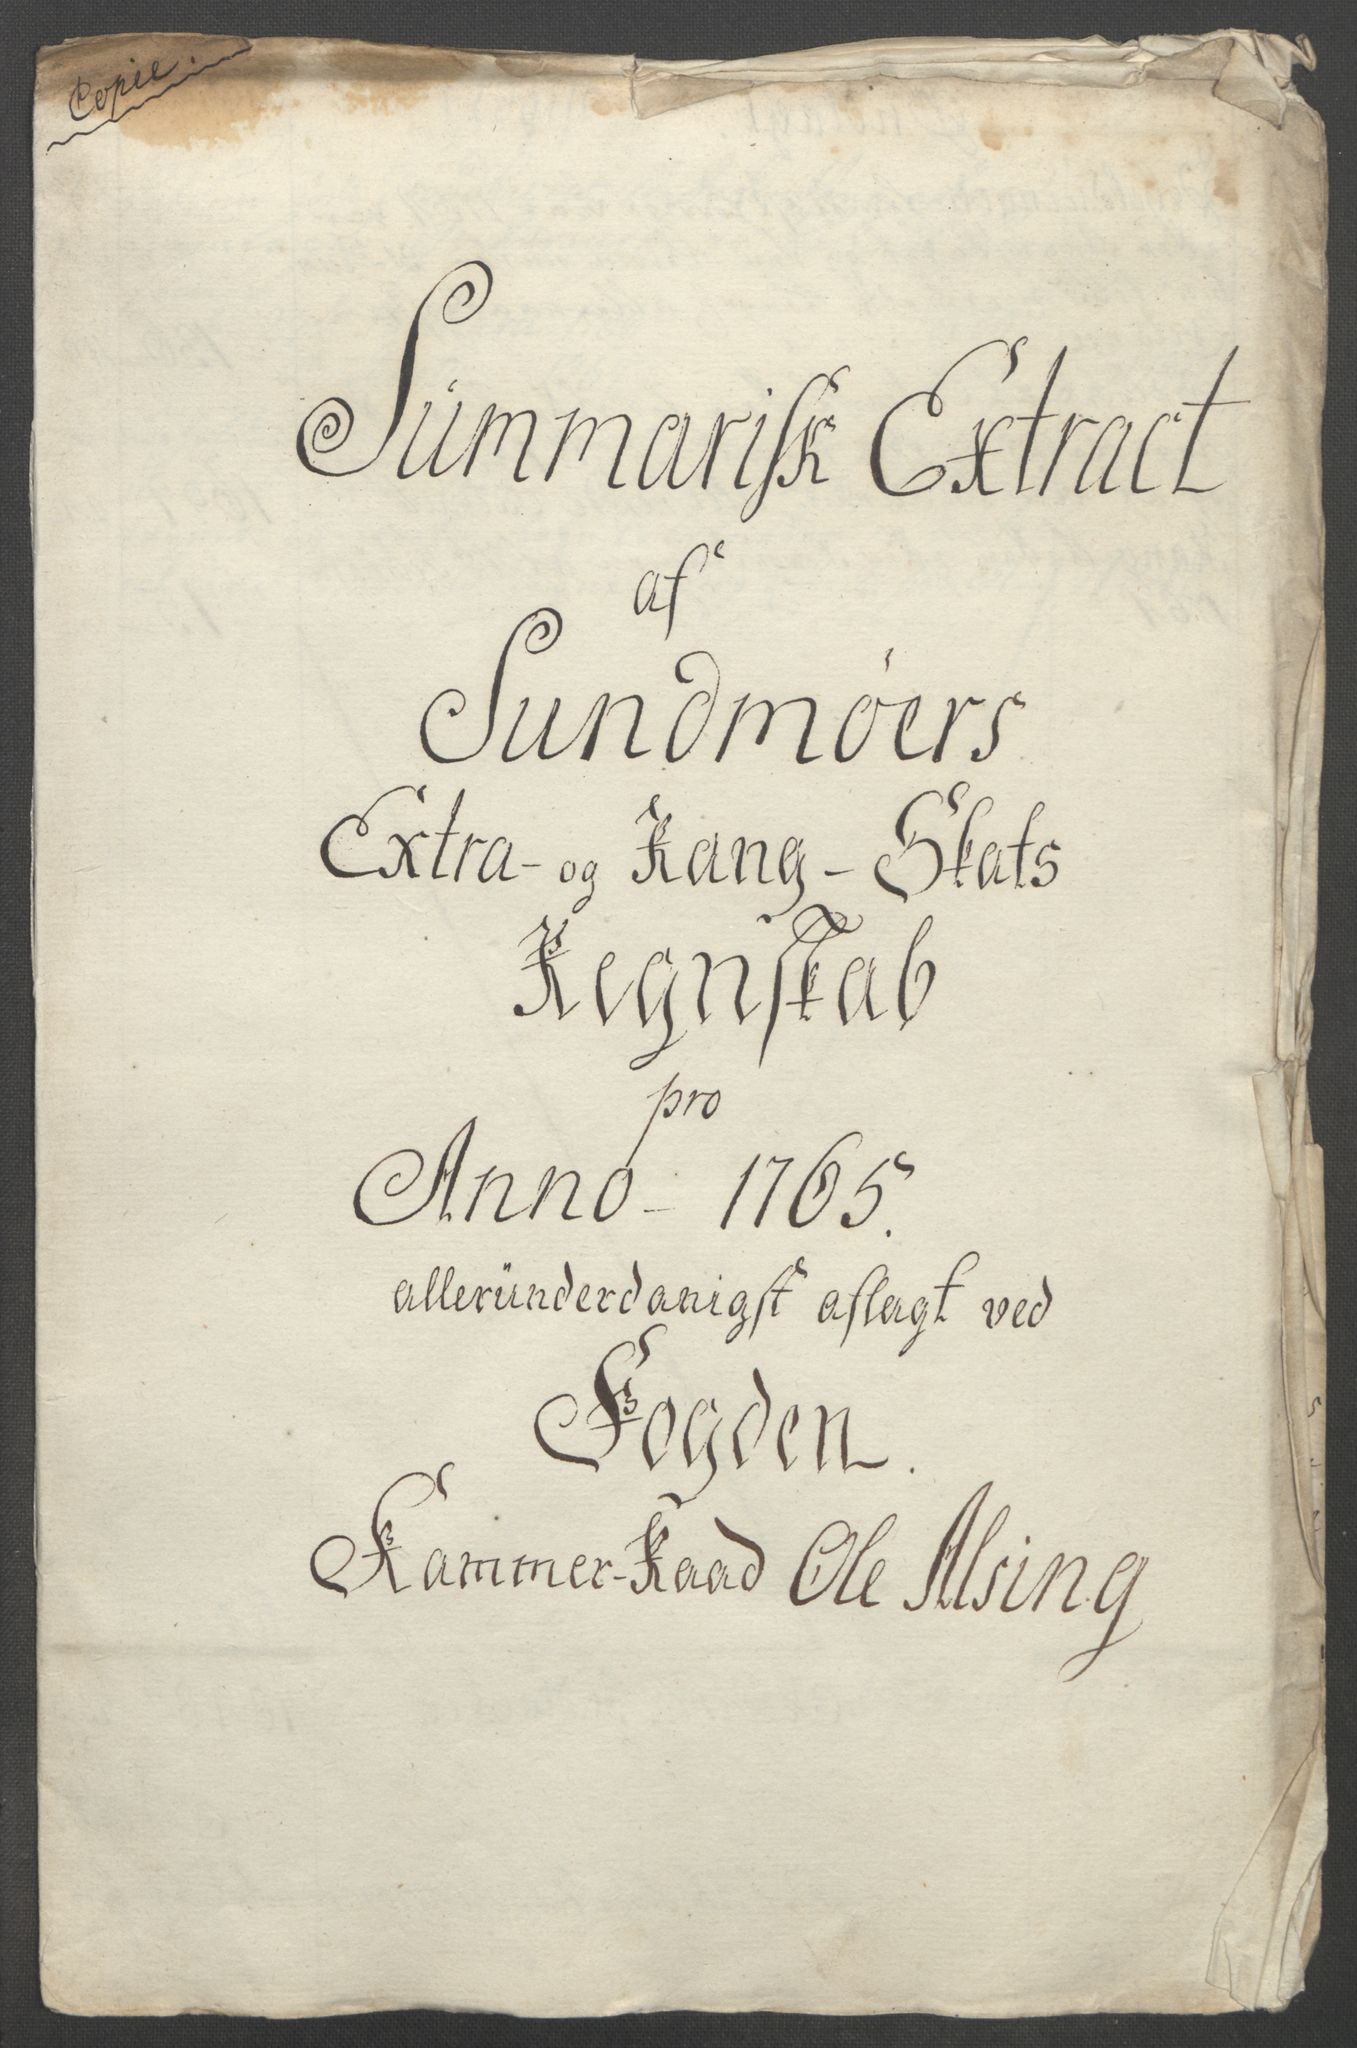 Copie.
Summarisk Extract
af
Sundmöers
Extra- og Rang- Skats
Regnskab
pro
Anno- 1765.
alleründerdanigst aflagt ved
Fogden.
Kammer-Raad Ole Alsing